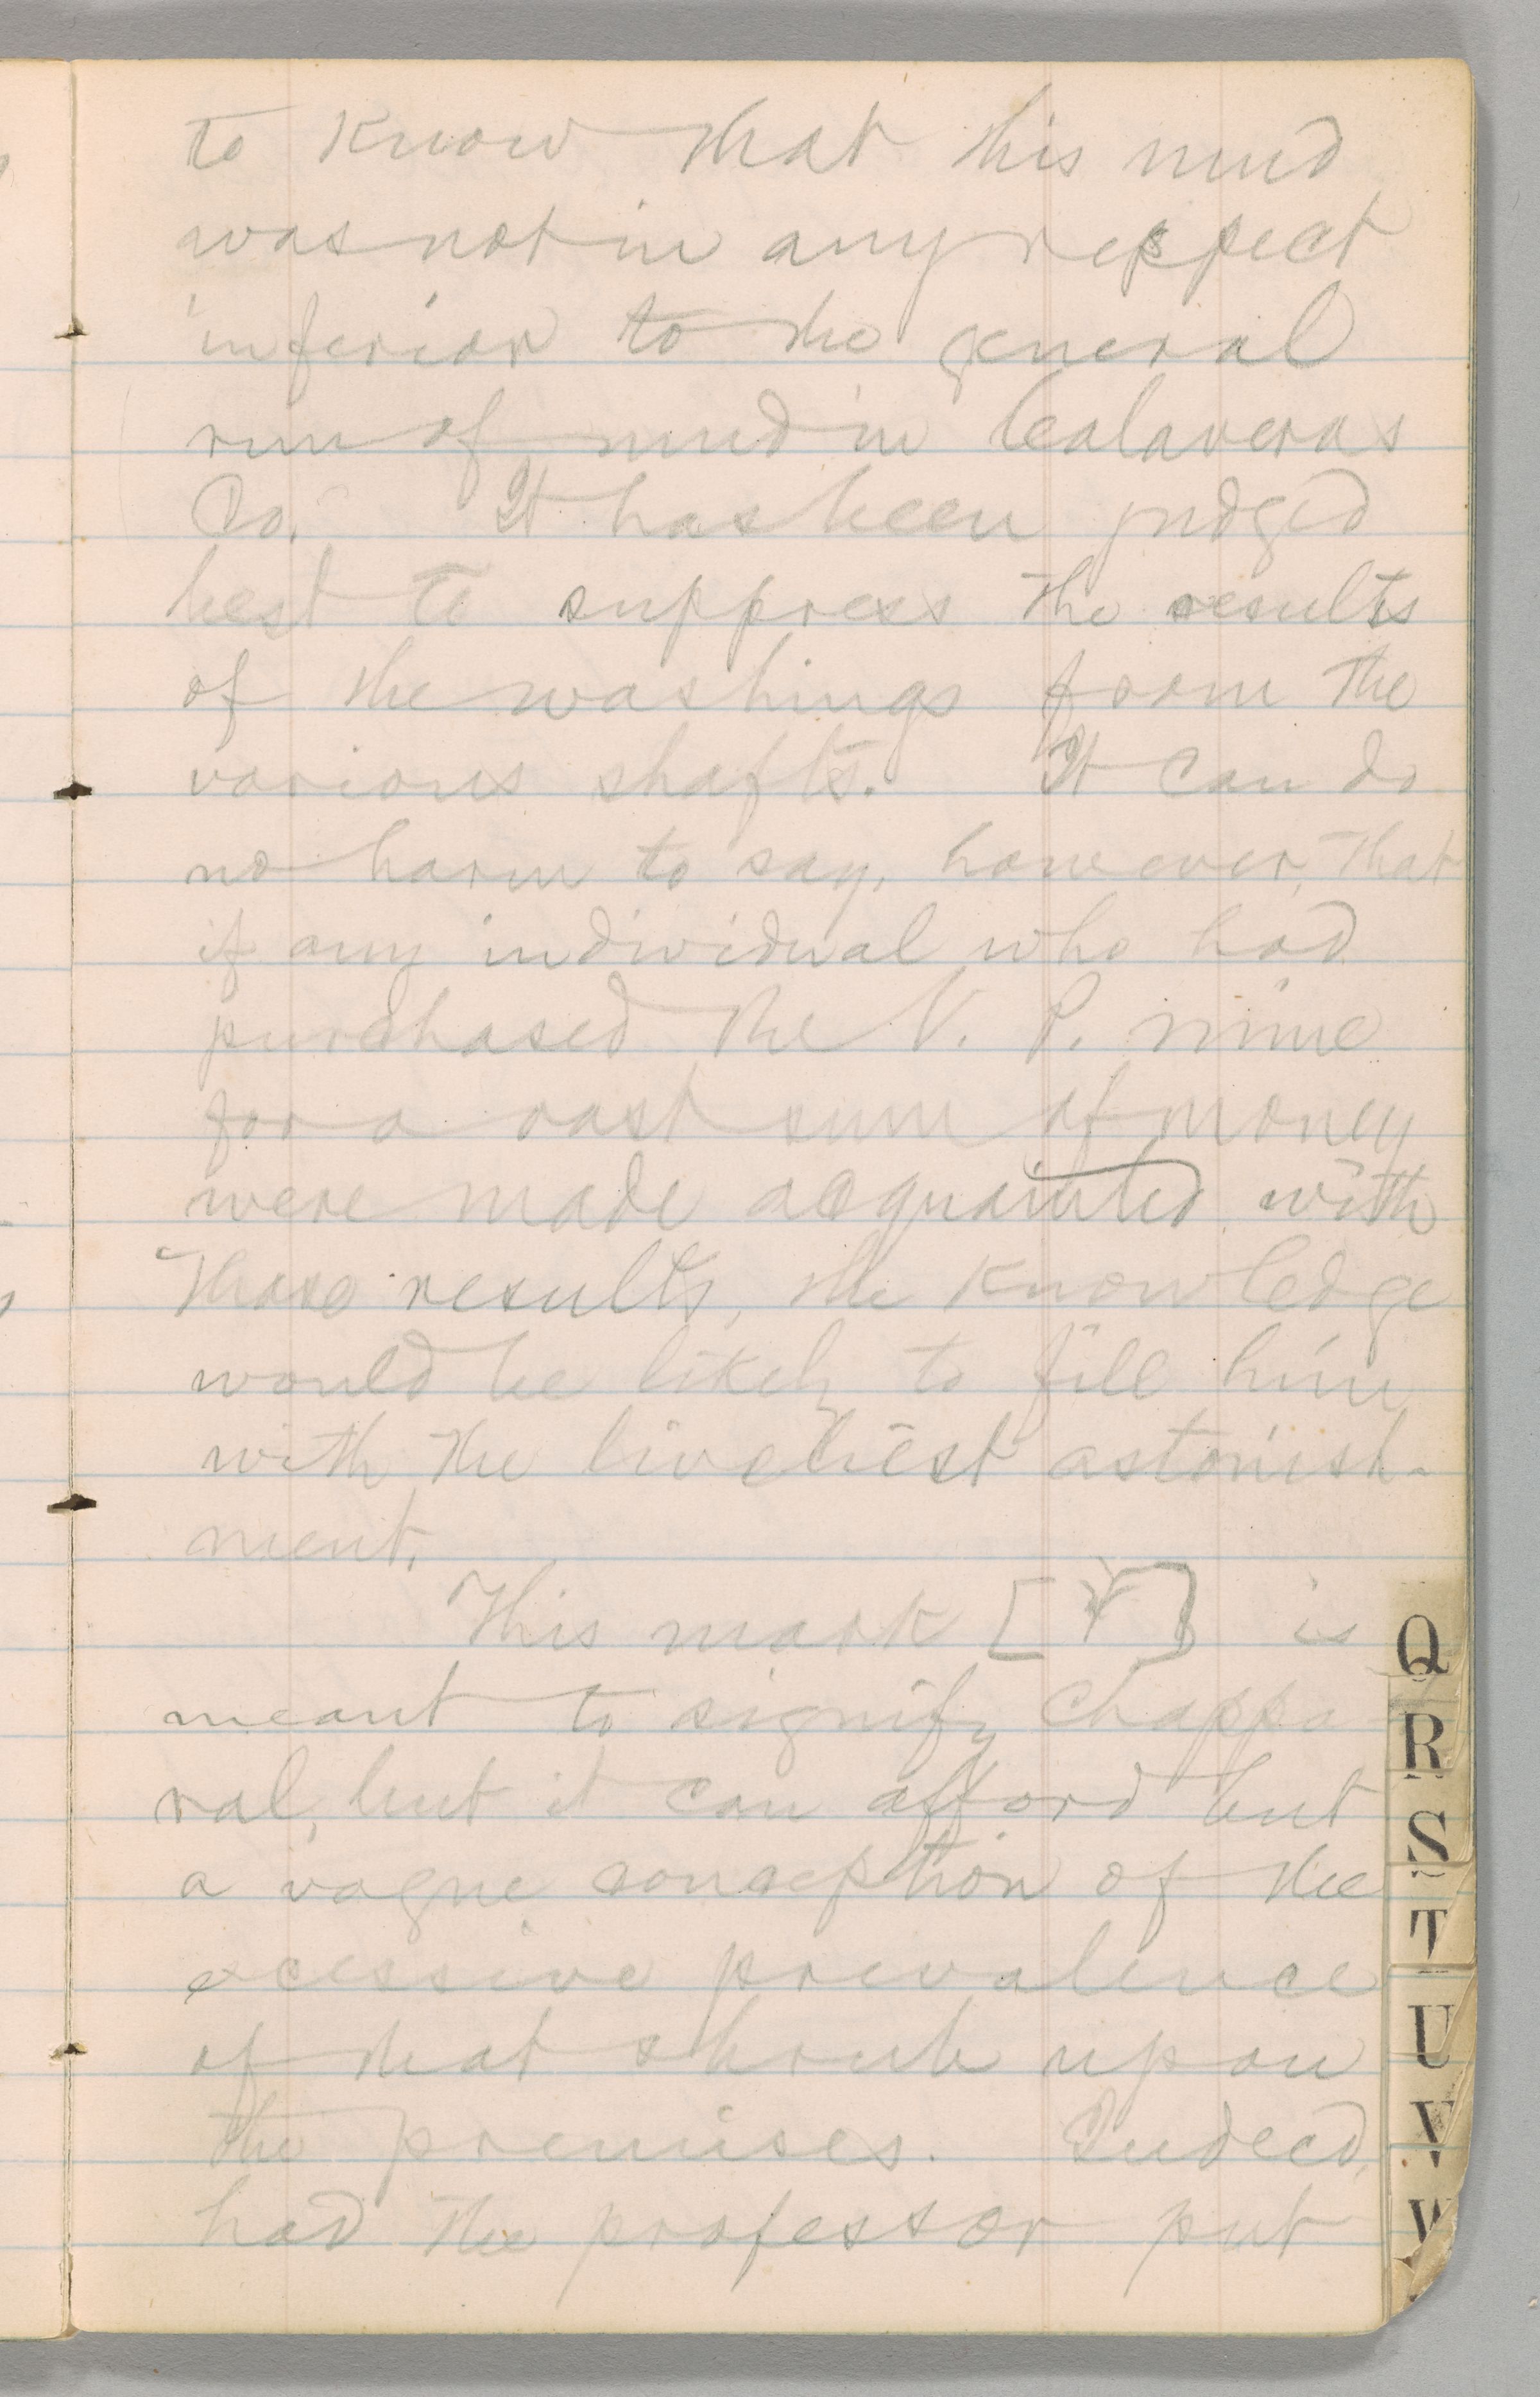 to know that this mud
was not in any respect
inferior to the general
run of mud in Calaveras
Co. It has been judged
best to suppress the results
of the washings from the
various shafts. It can do
no harm to say, however, that
if any individual who had
purchased the N. P. mine
for a vast sum of money
were made acquainted with
those results, the knowledge
would be likely to fill him
with the liveliest astonish-
ment.
This mark [ ] is
meant to signify chappa
ral, but it can afford but
a vague conception of the
excessive prevalence
of that shrub upon
the premises. Indeed,
had the professor put
Q
R
S
T
U
V
W